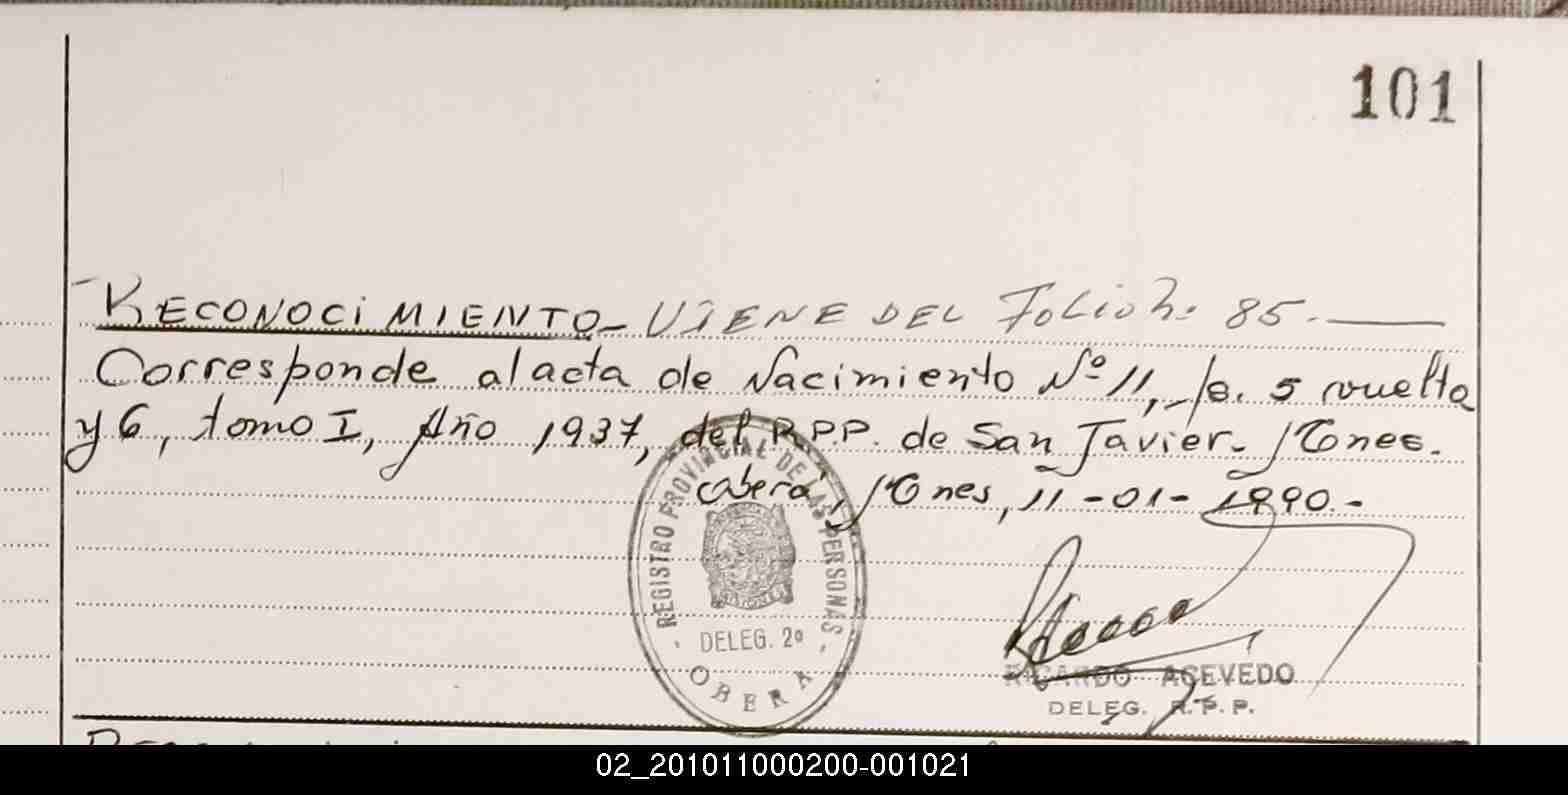 101
RECONOCIMIENTO_ VIENE DEL FOLIO N. 85.
Corresponde al acta de Nacimiento Nº 11, fo. 5 vuelta
y 6, tomo I, Año 1937, del R.P.P. de San Javier- Mones.
oberá, Mones, 11-01-1990.-
REGISTRO PROVINCIAL DE LAS PERSONAS
MISIONES
DELEG. 2º
OBERA
RICARDO ACEVEDO
DELEG. R.P.P.
02_201011000200-001021